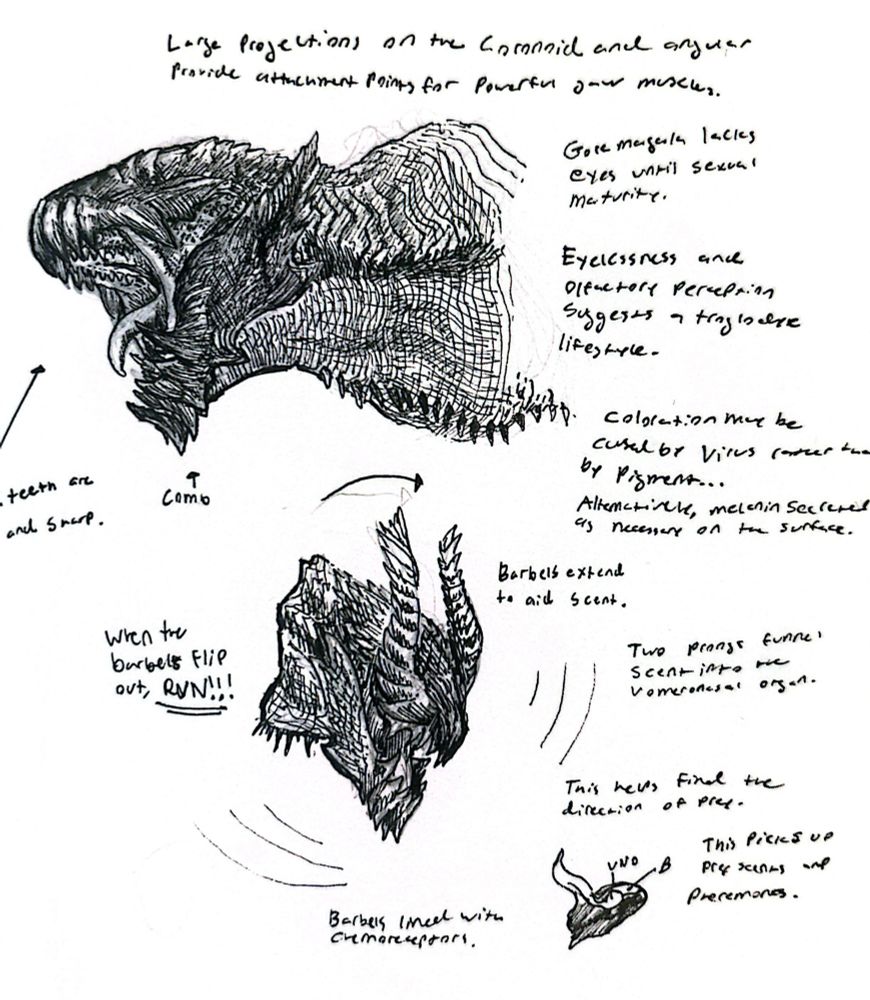 Large Projections on the Coronoid and angular
Provide attachment Points for Powerful jaw muscles.
Gore magala lacks
eyes until sexual
maturity.
Eyelessness and
Olfactory Perception
Suggests a troglodyte
lifestyle.
Coloration may be
cused by Virus rather
by Pigment...
Alternatively, melanin Secreted
as necessary on the surface.
teeth are
and Sharp.
Comb
Barbels extend
to aid Scent.
When the
barbels Flip
out, RUN!!!
Two Prongs funnel
Scent into the
vomeronasal organ.
This helps Find the
direction of Prey.
This Picks up
Prey scents and
Pheremones.
VNO
B
Barbels lined with
Chemoreceptors.